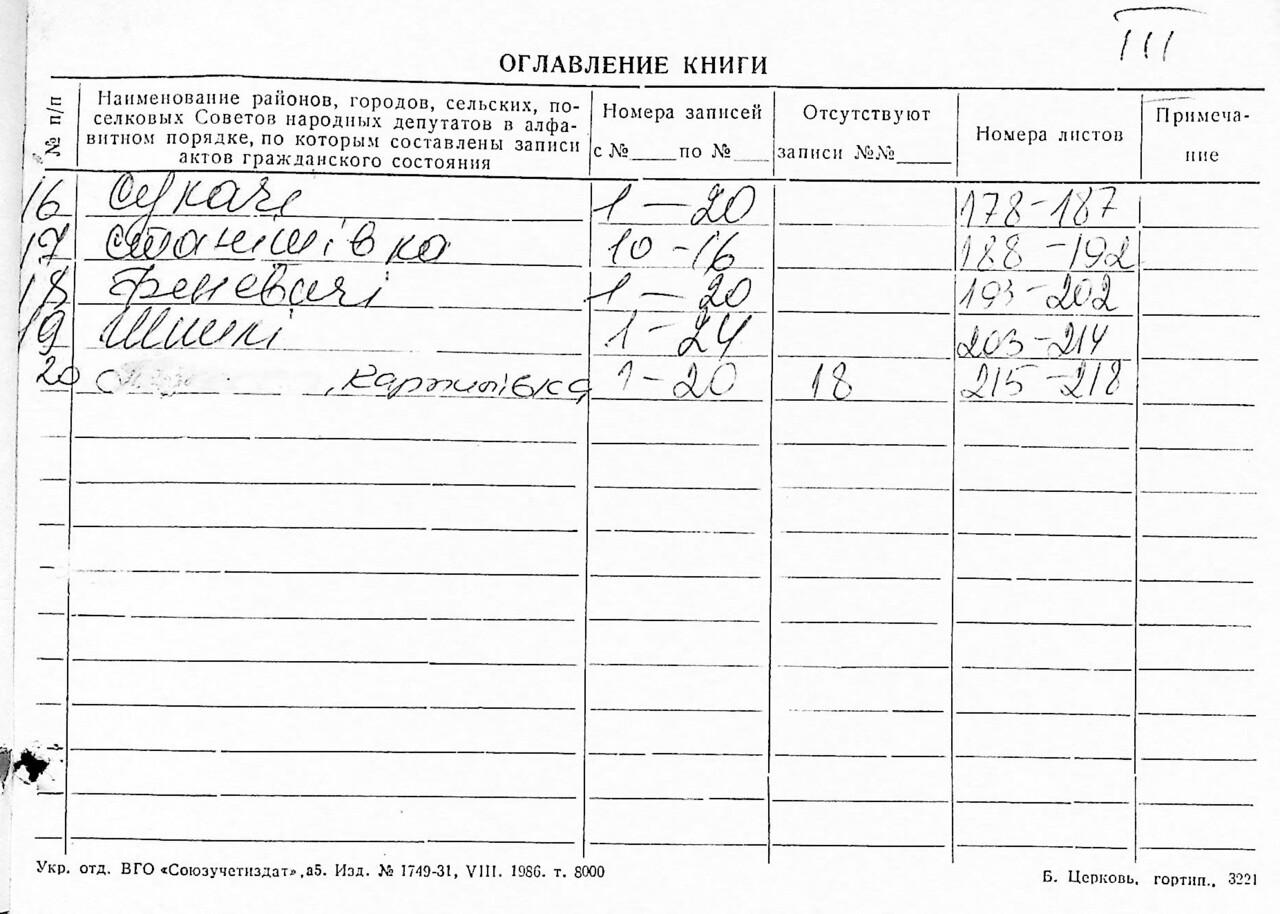 III
ОГЛАВЛЕНИЕ КНИГИ
№ п/п
Наименование районов, городов, сельских, по-
селковых Советов народных депутатов в алфа-
витном порядке, по которым составлены записи
актов гражданского состояния
Номера записей
с № по №
Отсутствуют
записи №№
Номера листов
Примеча-
ние
16 Сукачі 1 — 20 178-187
17 Станішівка 10 -16 188 -192
18 Феневичі 1 — 20 193-202
19 Шпилі 1 - 24 203-214
20 1 - 20 18 215 -218
Укр. отд. ВГО «Союзучетиздат»,а5. Изд. № 1749-31, VIII. 1986. т. 8000
Б. Церковь, гортип., 3221